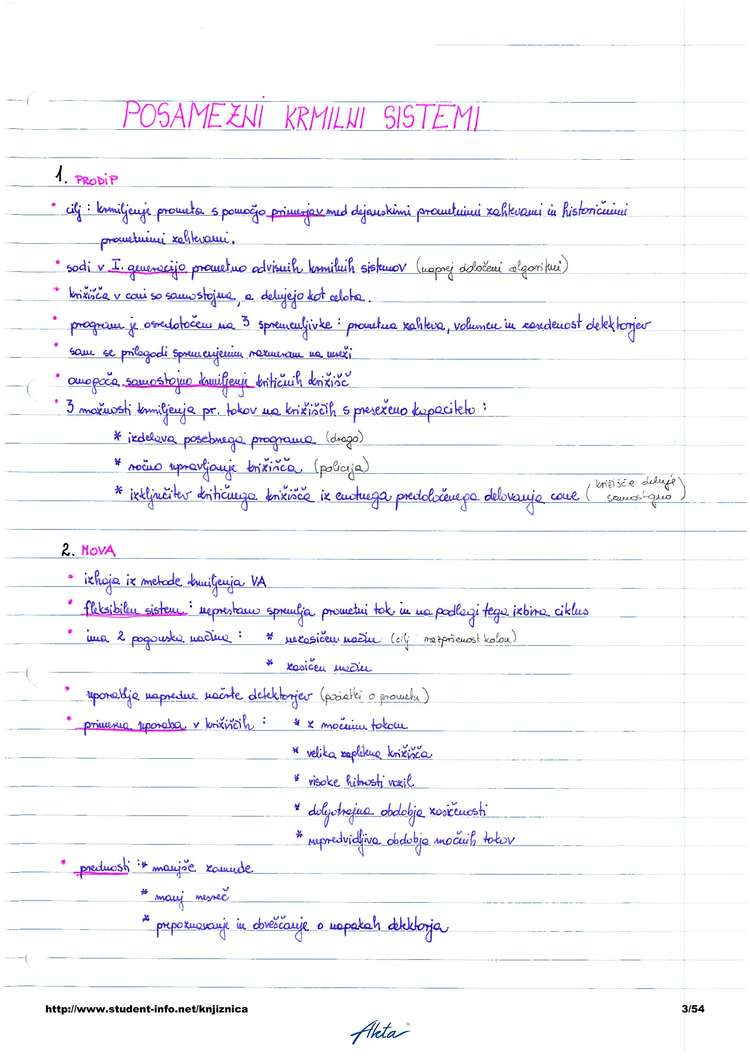 POSAMEZNI KRMILNI SISTEMI
1. PRODIP
• cilj : krmiljenje prometa s pomočjo primerjav med dejanskimi prometnimi zahtevami in historičnimi
prometnimi zahtevami.
• sodi v I. generacijo prometno odvisnih krmilnih sistemov (naprej določeni algoritmi)
• križišča v coni so samostojna, a delujejo kot celota.
• program je osredotočen na 3 spremenljivke : prometna zahteva, volumen in zasedenost detektorjev
• sam se prilagodi spremenjenim razmeram na mreži
• omogoča samostojno krmiljenje kritičnih križišč
• 3 možnosti krmiljenja pr. tokov na križiščih s preseženo kapaciteto :
* izdelava posebnega programa (drago)
* ročno upravljanje križišča (policija)
* izključitev kritičnega križišča iz enotnega predoločenega delovanja cone ( križišče deluje
samostojno )
2. MOVA
• izhaja iz metode krmiljenja VA
• fleksibilen sistem : neprestano spremlja prometni tok in na podlagi tega izbira ciklus
• ima 2 pogonska načina : * nezasičen način (cilj razpršenost kolon)
* zasičen način
• uporablja napredne načrte detektorjev (podatki o prometu)
• primerna uporaba v križiščih : * z močnim tokom
* velika zapletena križišča
* visoke hitrosti vozil
* dolgotrajna obdobja zasičenosti
* nepredvidljiva obdobja močnih tokov
• prednosti : * manjše zamude
* manj nesreč
* prepoznavanje in obveščanje o napakah detektorja
http://www.student-info.net/knjiznica
3/54
Akta